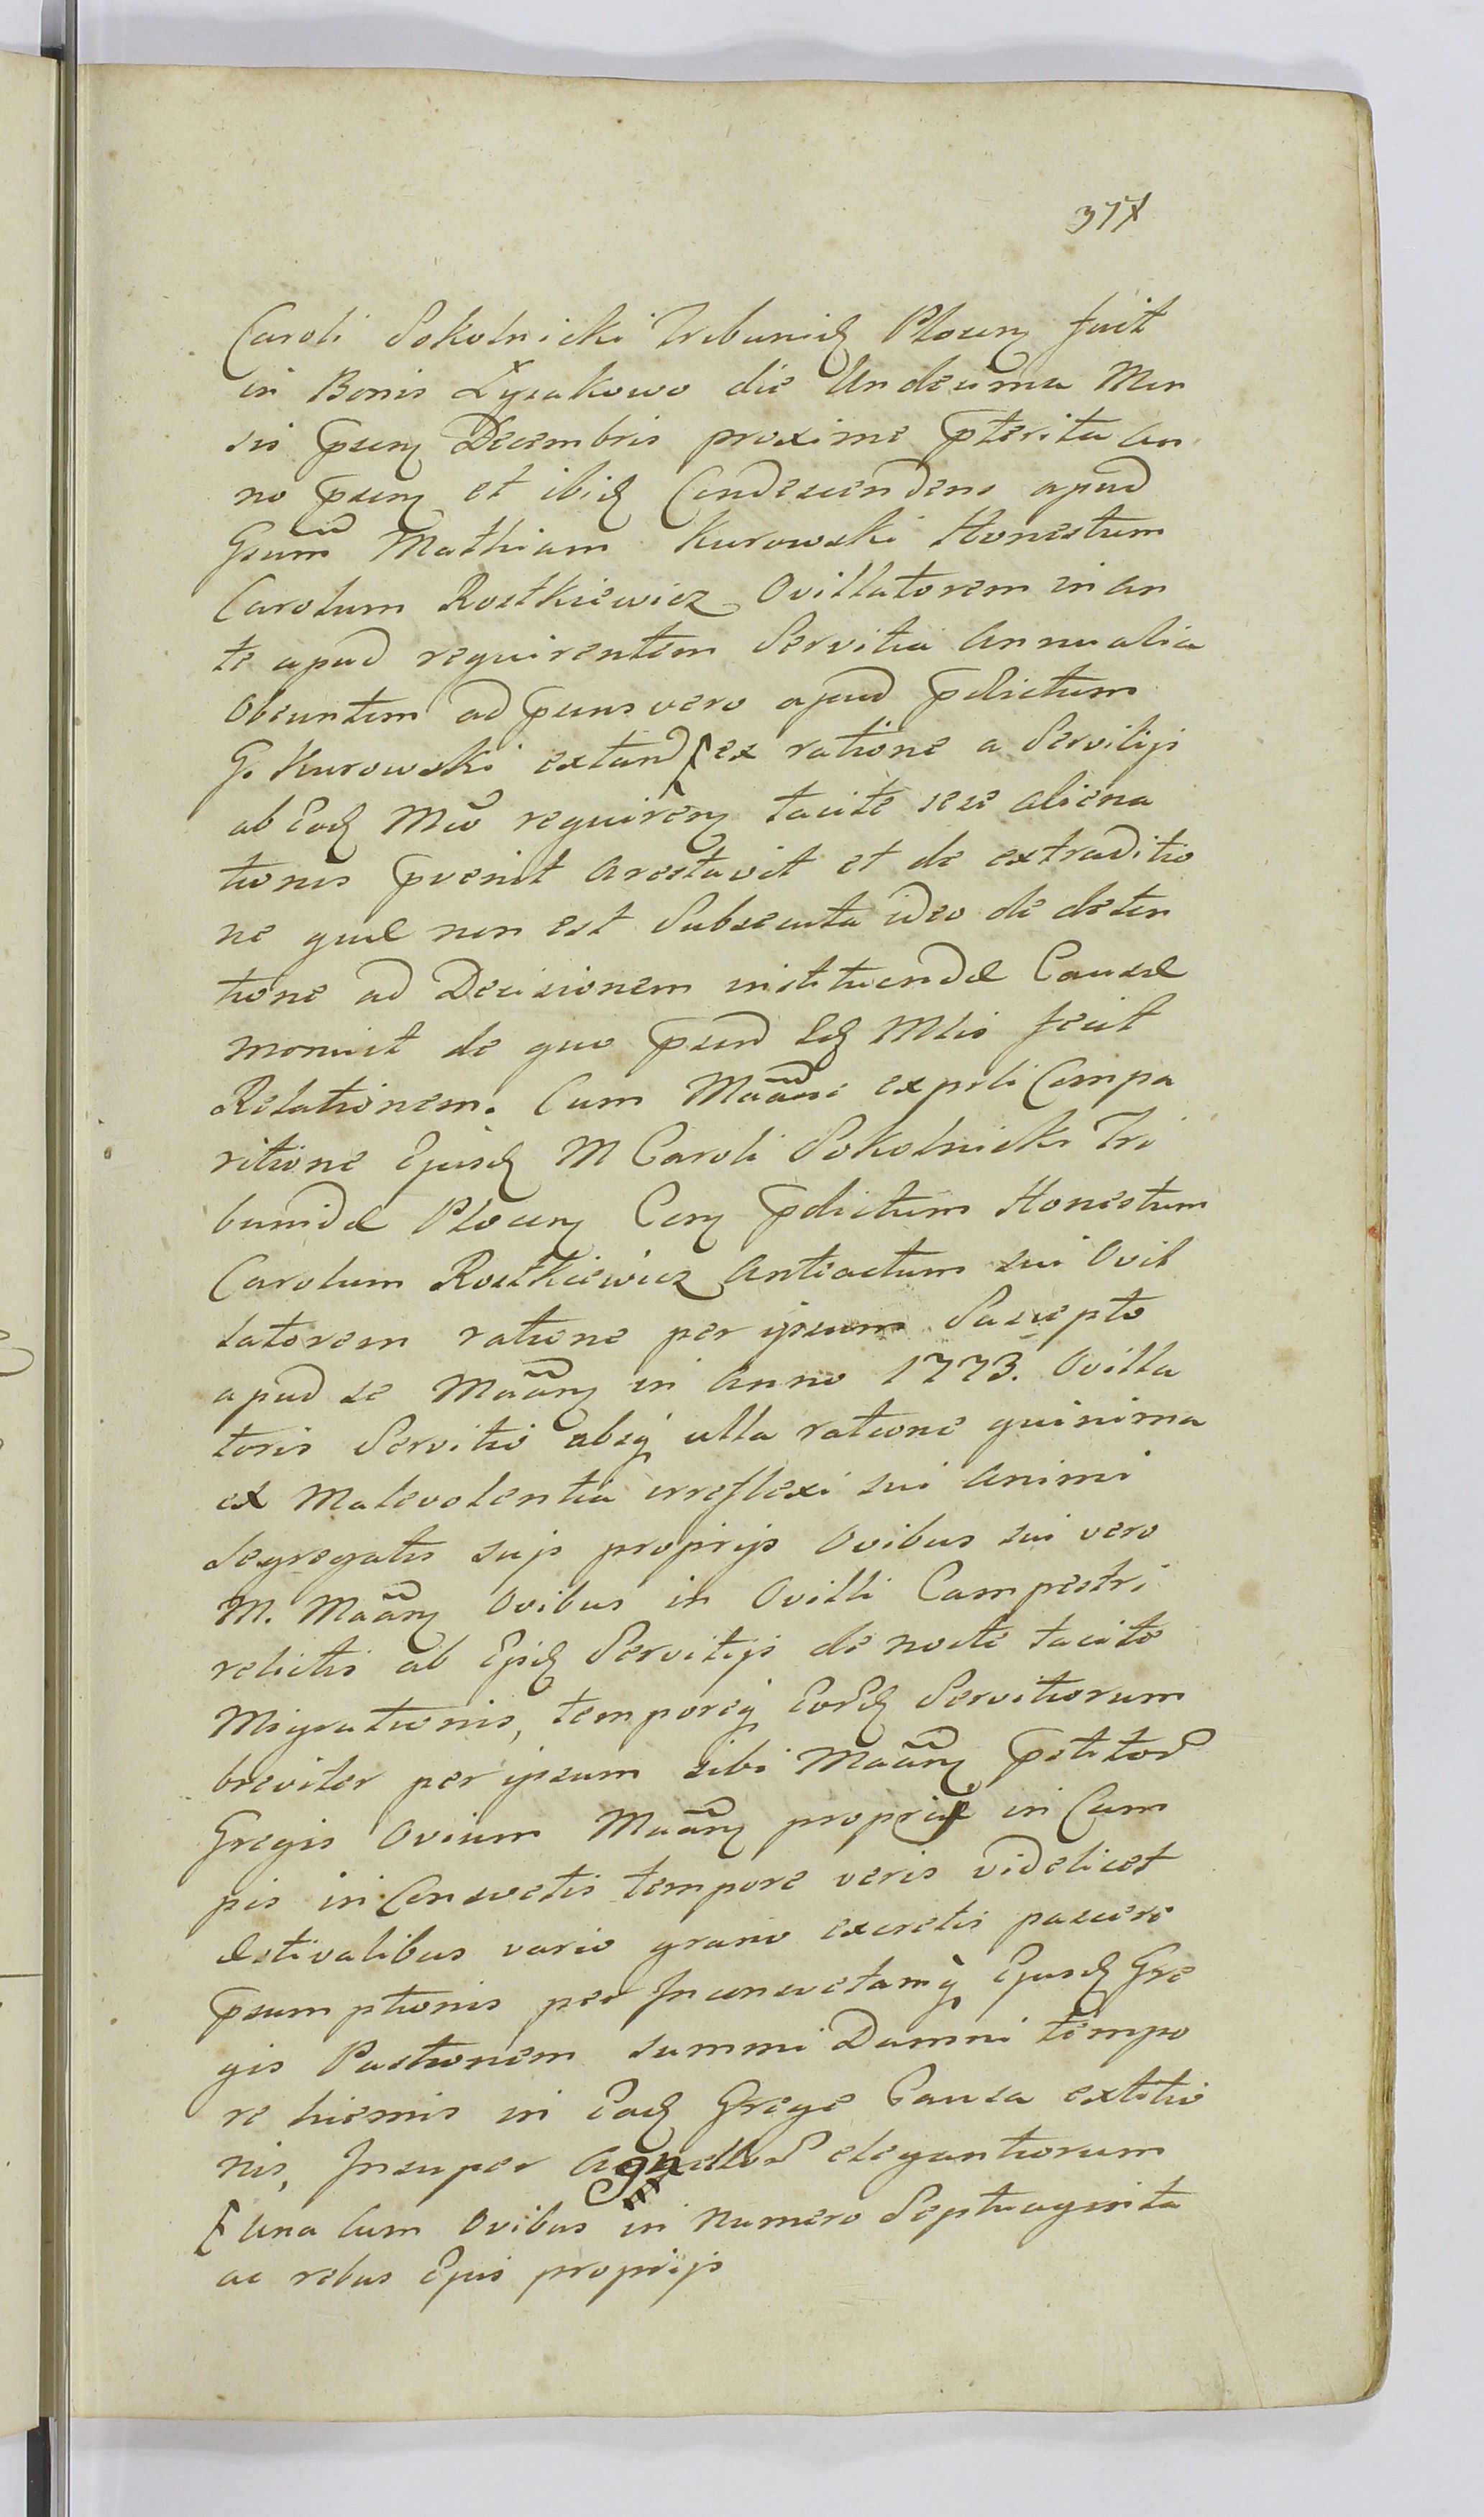 377
Caroli Sokolnicki Tribunid Plocen fuit
in Bonis Łysakowo die Undecima Men
sis psen Decembris proxime pterita an
no psen et ibid Condescendens apud
Gsum Mathiam Kurowski Honestum
Carolum Rostkiewicz Ovillatorem in an
te apud requirentem Servitia Annualia
Obeuntem ad psens vero apud pdictum
G. Kurowski extand ex ratione a Servitijs
ab Eod Mco requiren tacite sese aliena
tionis pvenit arestavit et de extraditio
ne quæ non est Subsecuta ideo de deten
tione ad Decisionem instituendæ Causæ
monuit de quo psens Id Mlis fecit
Relationem. Cum Maãne expsli Compa
ritione Ejusd M Caroli Sokolnicki Tri
bunidæ Plocen Con pdictum Honestum
Carolum Rostkiewicz Anteactum sui Ovil
latorem ratione per ipsum Suscepto
apud se Maãn in Anno 1773. Ovilla
toris Servitio absq ulla ratione quinima
ex Malevolentia irreflexi sui Animi
Segregatis suis proprijs Ovibus sui vero
M. Maãn Ovibus in Ovilli Campestri
relictis ab Ejsd Servitijs de nocte tacite
Migrationis, temporeq Eord Servitiorum
breviter per ipsum sibi Maãn pstitor
Gregis Ovium Maãn propriæ in Cam
pis inConsvetis tempore veris videlicet
æstivalibus vario grano excretis pascere
psumptionis per Inconsvetamq Ejusd Gre
gis Pastionem summi Damni tempo
re hiemis in Eod Grege Causa extitio
nis, Insuper Agnellor elegantiorum
una cum Ovibus in numero Septuaginta
ac rebus Ejus proprijs